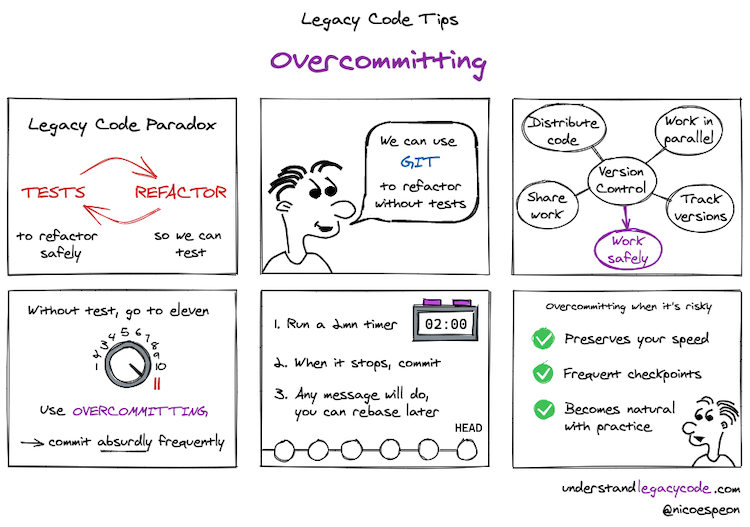 Legacy Code Tips
Overcommitting
Legacy Code Paradox
TESTS REFACTOR
to refactor
safely
so we can
test
We can use
GIT
to refactor
without tests
Distribute
code
Work in
parallel
Version
Control
Share
work
Track
versions
Work
safely
Without test, go to eleven
1 2 3 4 5 6 7 8 9 10
11
Use OVERCOMMITTING
→ commit absurdly frequently
1. Run a 2mn timer
02:00
2. When it stops, commit
3. Any message will do,
you can rebase later
HEAD
Overcommitting when it's risky
Preserves your speed
Frequent checkpoints
Becomes natural
with practice
understandlegacycode.com
@nicoespeon